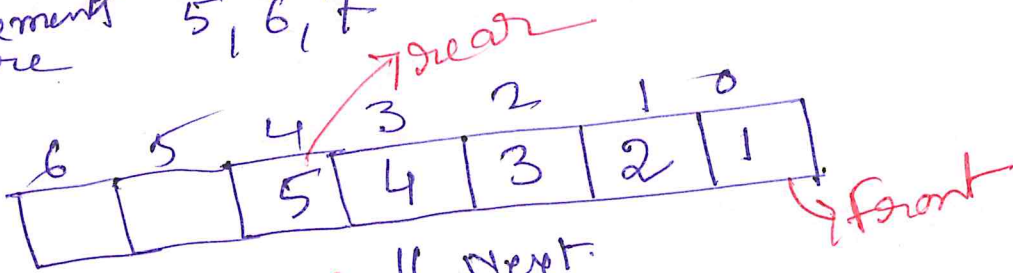 ements 5, 6, 7
re
rear
6 5 4 3 2 1 0
5 4 3 2 1
front
Next.